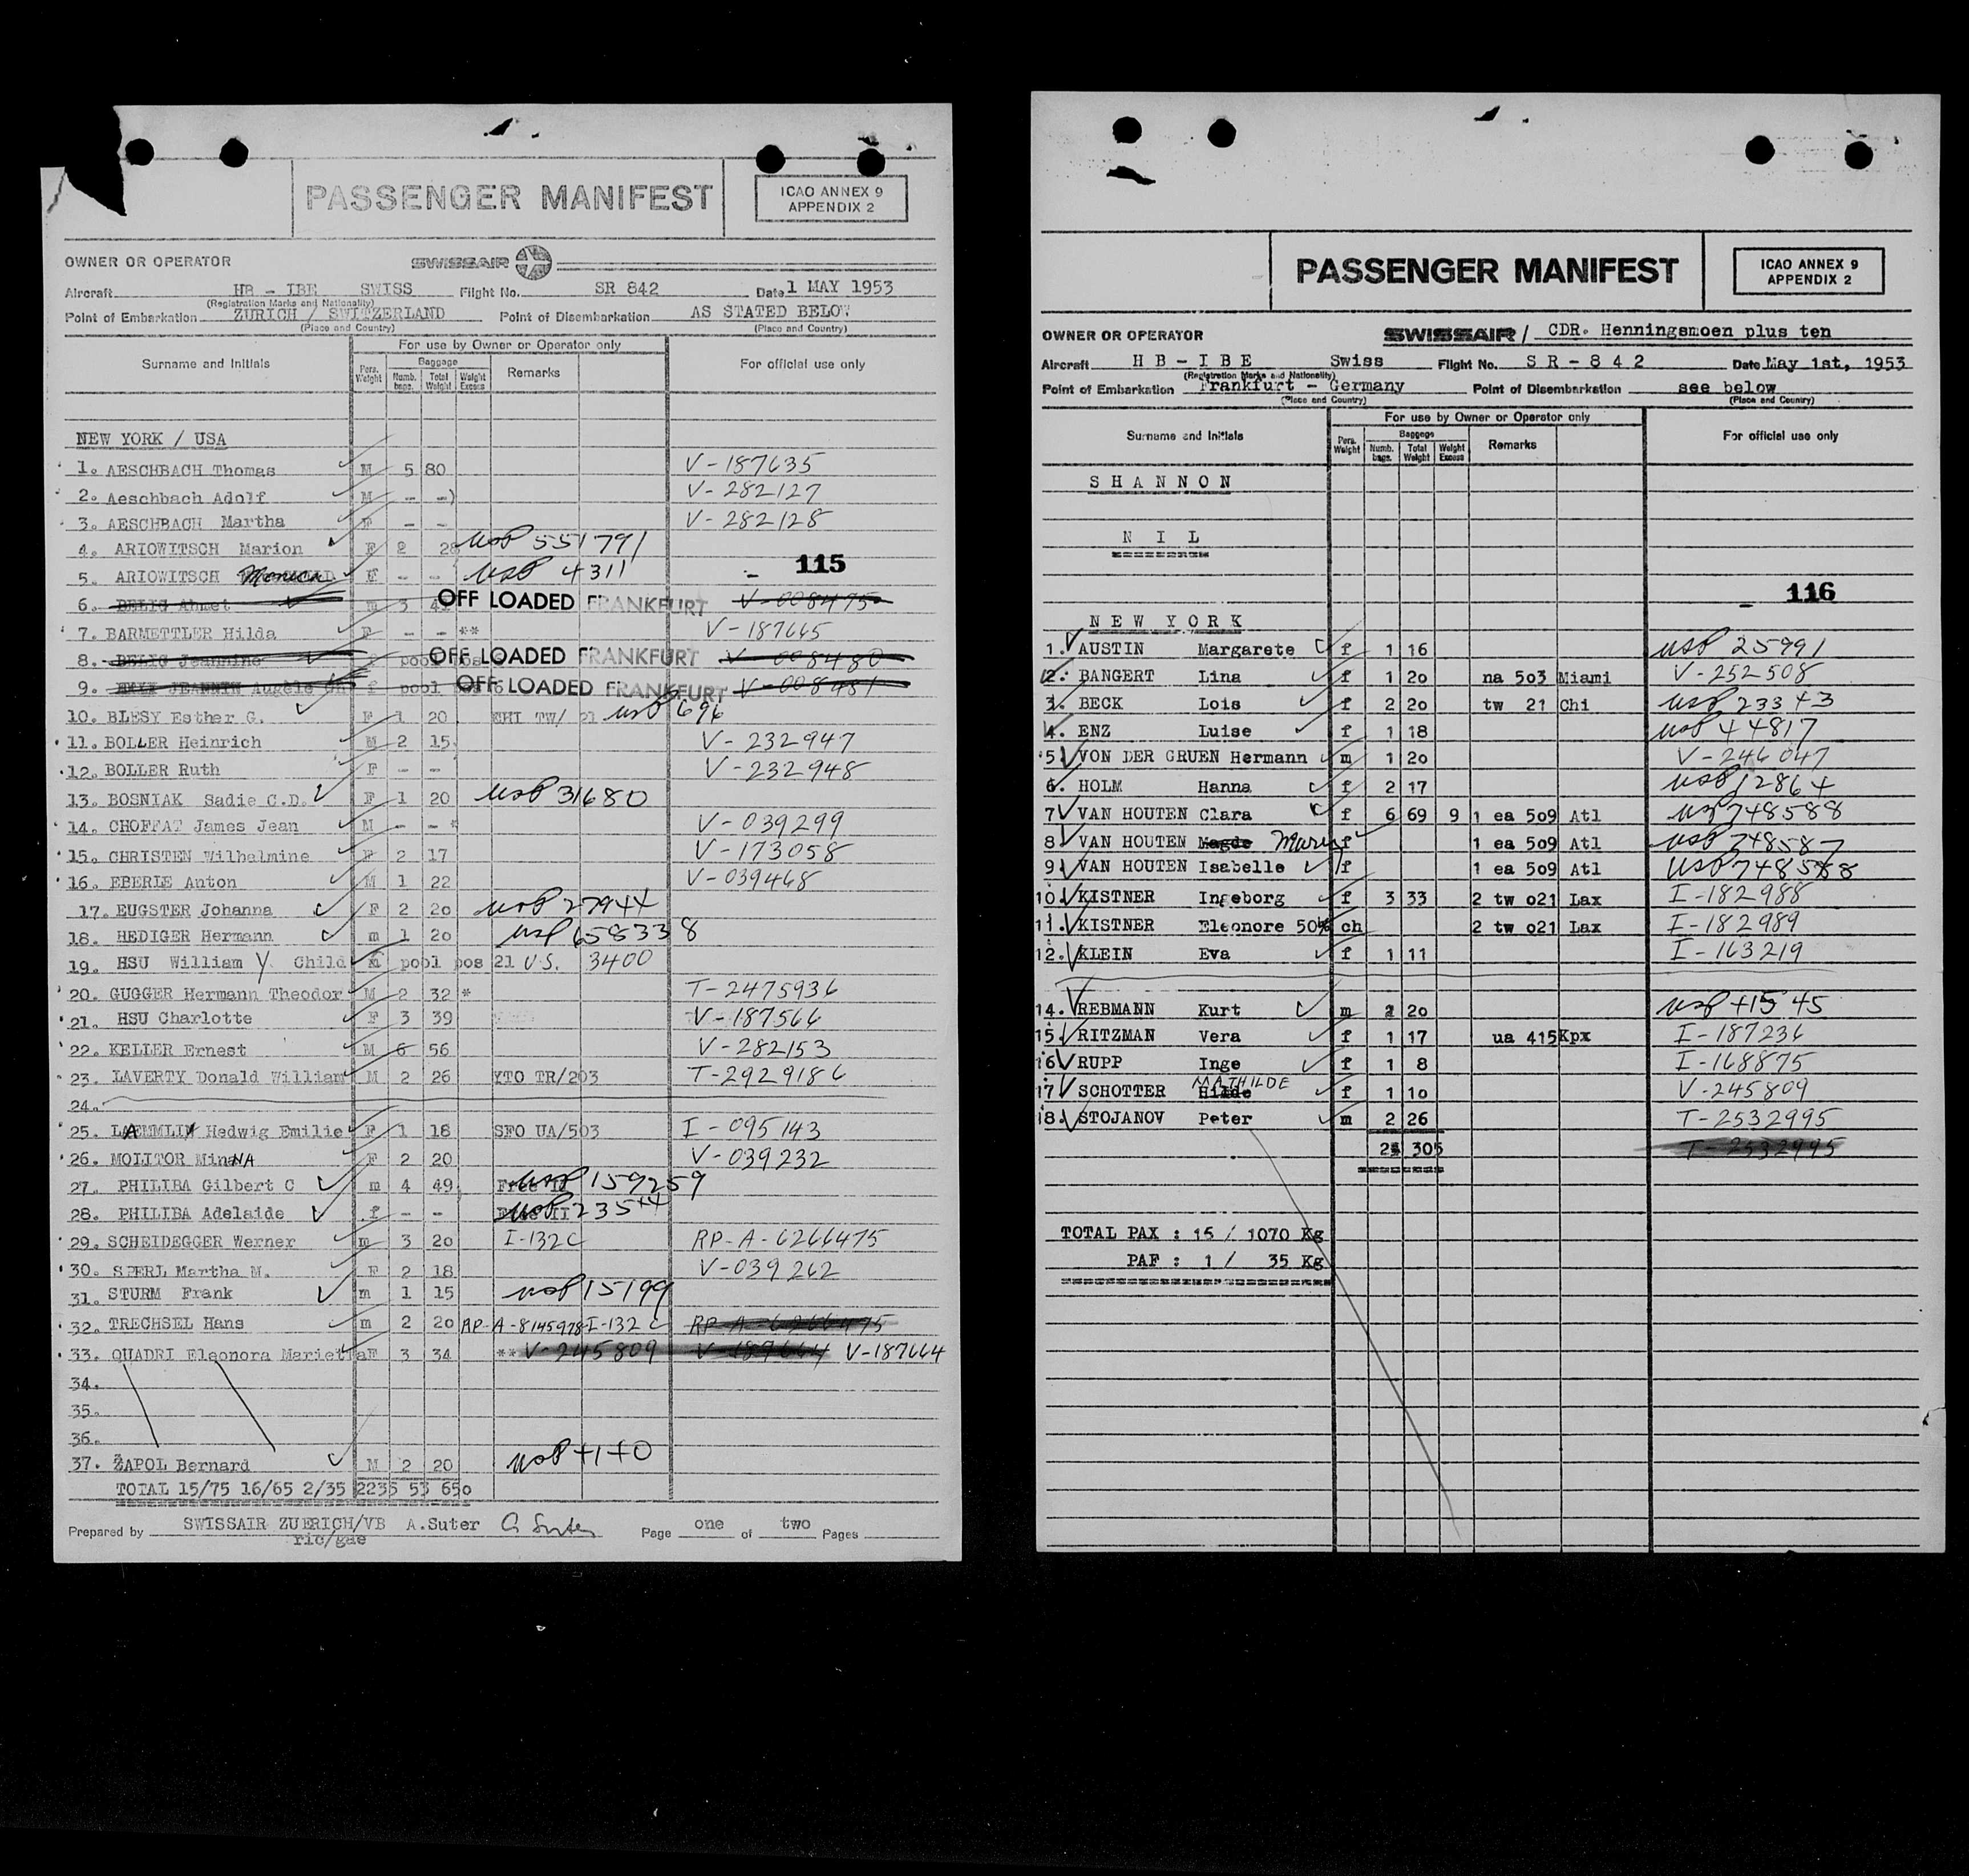 PASSENGER MANIFEST
ICAO ANNEX 9
APPENDIX 2
OWNER OR OPERATOR SWISSAIR
Aircraft HB - IBE SWISS Flight No. SR 842 Date 1 MAY 1953
(Registration Marks and Nationality)
Point of Embarkation ZURICH / SWITZERLAND Point of Disembarkation AS STATED BELOW
(Place and Country) (Place and Country)
For use by Owner or Operator only
Surname and Initials Pers. Weight Baggage Numb. bags. Total Weight Weight Excess Remarks For official use only
NEW YORK / USA
1. AESCHBACH Thomas M 5 80 V-187635
2. Aeschbach Adolf M - -) V-282127
3. AESCHBACH Martha F - - V-282128
4. ARIOWITSCH Marion F 2 28 USP 551791
5. ARIOWITSCH Monica F - - USP 4311
115
6. BELIG Ahmet m 3 OFF LOADED FRANKFURT V-008475
7. BARMETTLER Hilda F - - ** V-187665
8. BELIG Jeannine pool pos OFF LOADED FRANKFURT V-008480
9. JEANNIN Augèle f pool pos 6 OFF LOADED FRANKFURT V-008481
10. BLESY Esther G. F 1 20 CHI TW/ 21 USP 696
11. BOLLER Heinrich M 2 15 V-232947
12. BOLLER Ruth F - - V-232948
13. BOSNIAK Sadie C.D. F 1 20 USP 31680
14. CHOFFAT James Jean M - - * V-039299
15. CHRISTEN Wilhelmine F 2 17 V-173058
16. EBERLE Anton M 1 22 V-039468
17. EUGSTER Johanna F 2 20 USP 27944
18. HEDIGER Hermann m 1 20 USP 658338
19. HSU William Y. Child m pool pos 21 U.S. 3400
20. GUGGER Hermann Theodor M 2 32 * T-2475936
21. HSU Charlotte F 3 39 V-187566
22. KELLER Ernest M 6 56 V-282153
23. LAVERTY Donald William M 2 26 YTO TR/203 T-2929186
24.
25. LAEMMLIN Hedwig Emilie F 1 18 SFO UA/503 I-095143
26. MOLITOR MinaNA F 2 20 V-039232
27. PHILIBA Gilbert C m 4 49 USP 159259
28. PHILIBA Adelaide f - - USP 23544
29. SCHEIDEGGER Werner m 3 20 I-132C RP-A-6266475
30. SPERL Martha M. F 2 18 V-039262
31. STURM Frank m 1 15 USP 15199
32. TRECHSEL Hans m 2 20 RP-A-8145978 I-132 C RP-A-6266475
33. QUADRI Eleonora Marietta F 3 34 ** V-245809 V-187664 V-187664
34.
35.
36.
37. ZAPOL Bernard M 2 20 USP 4140
TOTAL 15/75 16/65 2/35 2235 53 650
Prepared by SWISSAIR ZUERICH/VB A.Suter A Suter Page one of two Pages
ric/gae
PASSENGER MANIFEST
ICAO ANNEX 9
APPENDIX 2
OWNER OR OPERATOR SWISSAIR / CDR. Henningsmoen plus ten
Aircraft HB-IBE Swiss Flight No. SR-842 Date May 1st, 1953
(Registration Marks and Nationality)
Point of Embarkation Frankfurt - Germany Point of Disembarkation see below
(Place and Country) (Place and Country)
For use by Owner or Operator only
Surname and Initials Pers. Weight Baggage Numb. bags. Total Weight Weight Excess Remarks For official use only
SHANNON
NIL
116
NEW YORK
1. AUSTIN Margarete f 1 16 USP 25991
2. BANGERT Lina f 1 20 na 503 Miami V-252508
3. BECK Lois f 2 20 tw 21 Chi USP 23343
4. ENZ Luise f 1 18 USP 44817
5. VON DER GRUEN Hermann m 1 20 V-246047
6. HOLM Hanna f 2 17 USP 12864
7 VAN HOUTEN Clara f 6 69 9 1 ea 509 Atl USP 748588
8 VAN HOUTEN Magde Marie f 1 ea 509 Atl USP 748587
9 VAN HOUTEN Isabelle f 1 ea 509 Atl USP 748588
10. KISTNER Ingeborg f 3 33 2 tw 021 Lax I-182988
11. KISTNER Eleonore 50% ch 2 tw 021 Lax I-182989
12. KLEIN Eva f 1 11 I-163219
14. REBMANN Kurt m 2 20 USP 41545
15. RITZMAN Vera f 1 17 ua 415 Kpx I-187236
16 RUPP Inge f 1 8 I-168875
17 SCHOTTER Hilde MATHILDE f 1 10 V-245809
18. STOJANOV Peter m 2 26 T-2532995
25 305 T-2532995
TOTAL PAX : 15 / 1070 Kg
PAF : 1 / 35 Kg